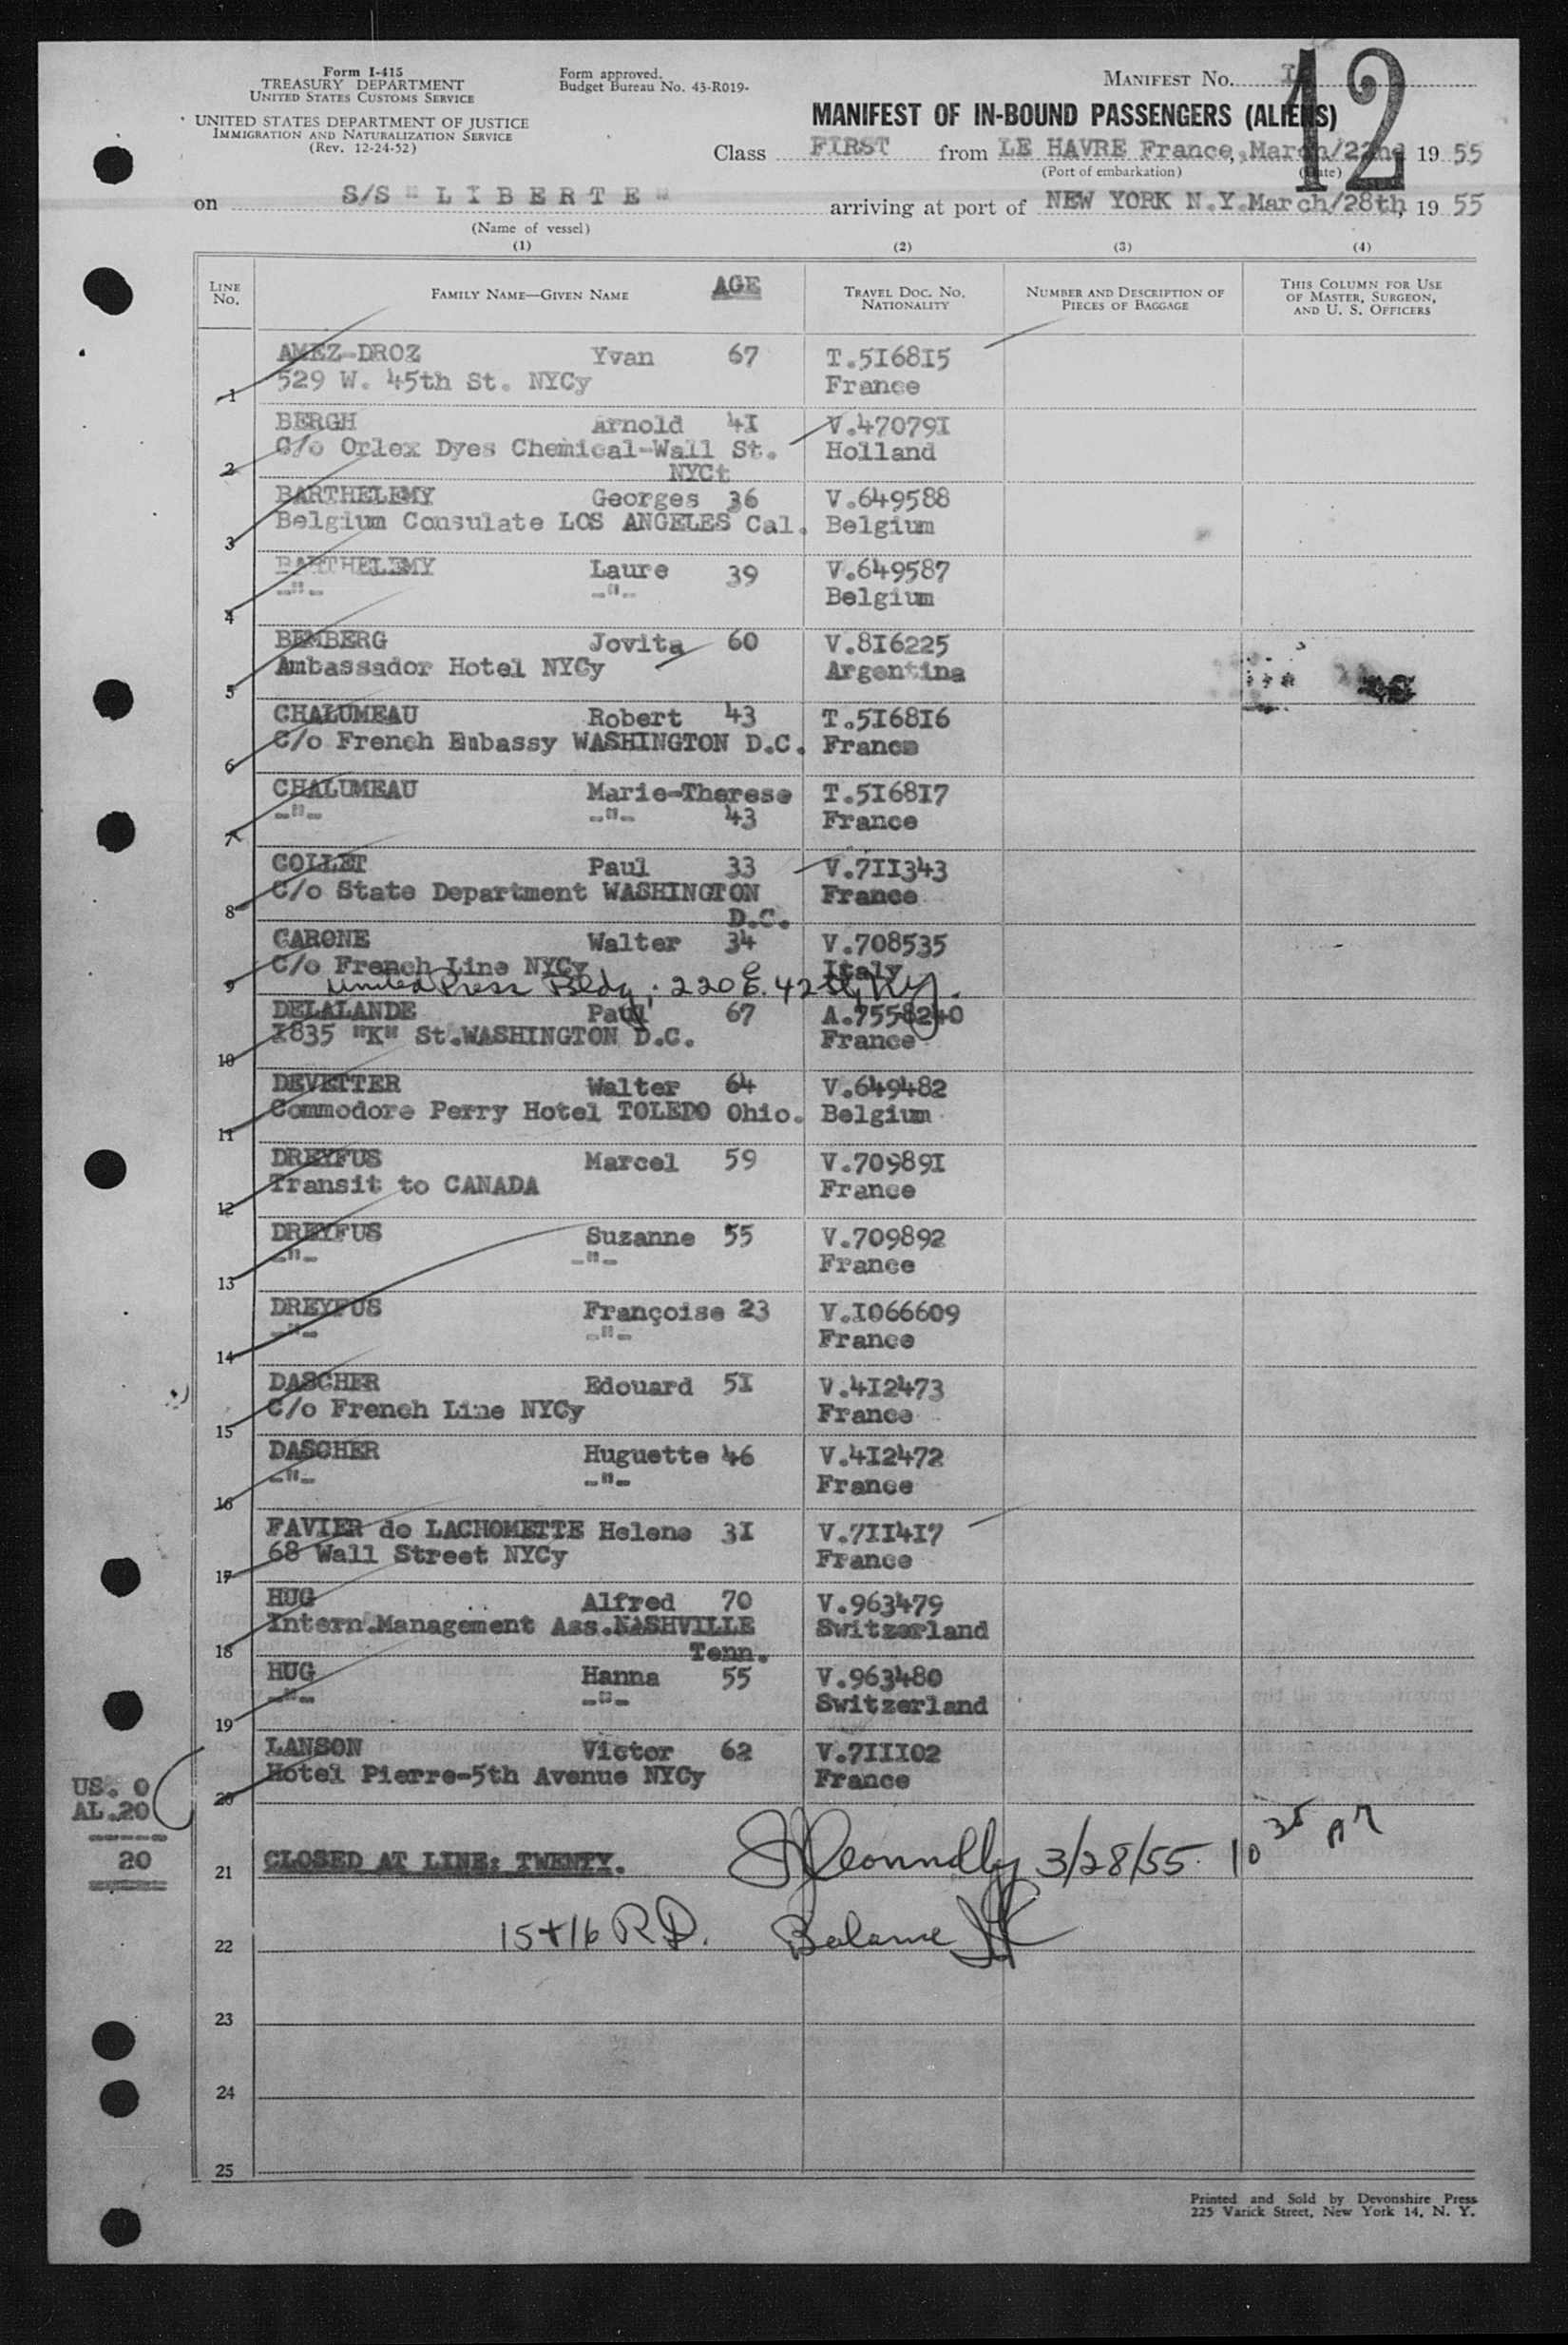 Form I-415
TREASURY DEPARTMENT
UNITED STATES CUSTOMS SERVICE
UNITED STATES DEPARTMENT OF JUSTICE
IMMIGRATION AND NATURALIZATION SERVICE
(Rev. 12-24-52)
Form approved.
Budget Bureau No. 43-R019-
MANIFEST NO. I
12
MANIFEST OF IN-BOUND PASSENGERS (ALIENS)
Class FIRST from LE HAVRE France, March/22nd 1955
(Port of embarkation) (Date)
on S/S "LIBERTE" arriving at port of NEW YORK N.Y. March/28th, 1955
(Name of vessel)
(1) (2) (3) (4)
LINE NO. FAMILY NAME—GIVEN NAME AGE TRAVEL DOC. NO. NATIONALITY NUMBER AND DESCRIPTION OF PIECES OF BAGGAGE THIS COLUMN FOR USE OF MASTER, SURGEON, AND U. S. OFFICERS
AMEZ-DROZ Yvan 67 T.5I68I5
1 529 W. 45th St. NYCy France
BERGH Arnold 4I V.47079I
2 C/o Orlex Dyes Chemical-Wall St. Holland
NYCt
BARTHELEMY Georges 36 V.649588
3 Belgium Consulate LOS ANGELES Cal. Belgium
BARTHELEMY Laure 39 V.649587
4 -"- -"- Belgium
BEMBERG Jovita 60 V.8I6225
5 Ambassador Hotel NYCy Argentina
CHALUMEAU Robert 43 T.5I68I6
6 C/o French Embassy WASHINGTON D.C. France
CHALUMEAU Marie-Therese T.5I68I7
7 -"- -"- 43 France
COLLET Paul 33 V.7II343
8 C/o State Department WASHINGTON France
D.C.
CARONE Walter 34 V.708535
9 C/o French Line NYCy Italy
United Press Bldg. 220 E. 42th Ny.
DELALANDE Paul 67 A.7558240
10 I835 "K" St.WASHINGTON D.C. France
DEVETTER Walter 64 V.649482
11 Commodore Perry Hotel TOLEDO Ohio. Belgium
DREYFUS Marcel 59 V.70989I
12 Transit to CANADA France
DREYFUS Suzanne 55 V.709892
13 -"- -"- France
DREYFUS Françoise 23 V.I066609
14 -"- -"- France
DASCHER Edouard 5I V.4I2473
15 C/o French Line NYCy France
DASCHER Huguette 46 V.4I2472
16 -"- -"- France
FAVIER de LACHOMETTE Helene 3I V.7II4I7
17 68 Wall Street NYCy France
HUG Alfred 70 V.963479
18 Intern.Management Ass.NASHVILLE Switzerland
Tenn.
HUG Hanna 55 V.963480
19 -"- -"- Switzerland
LANSON Victor 62 V.7III02
20 Hotel Pierre-5th Avenue NYCy France
US. 0
AL.20
20
21 CLOSED AT LINE: TWENTY. 3/28/55 10 35
22 15+16 R.D. Balance
23
24
25
Printed and Sold by Devonshire Press
225 Varick Street, New York 14, N. Y.